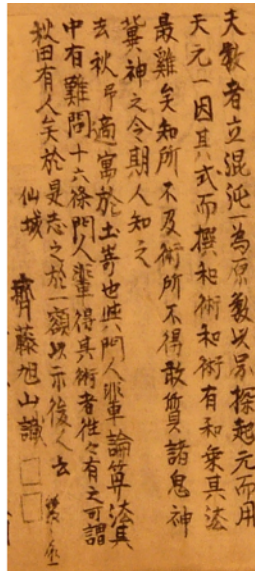 夫数者立混沌一為原数以昇探起元而用
天元一因其式而撰和術和術有和象其法
最難矣知所不及術所不得敢質諸鬼神
冀神之令期人知之
去秋予適寓於土嵜也與門人輩論算法其
中有難問十六條門人輩得其術者往々有之可謂
秋田有人矣於是志之於一額以示後人云
仙城 齊藤旭山識